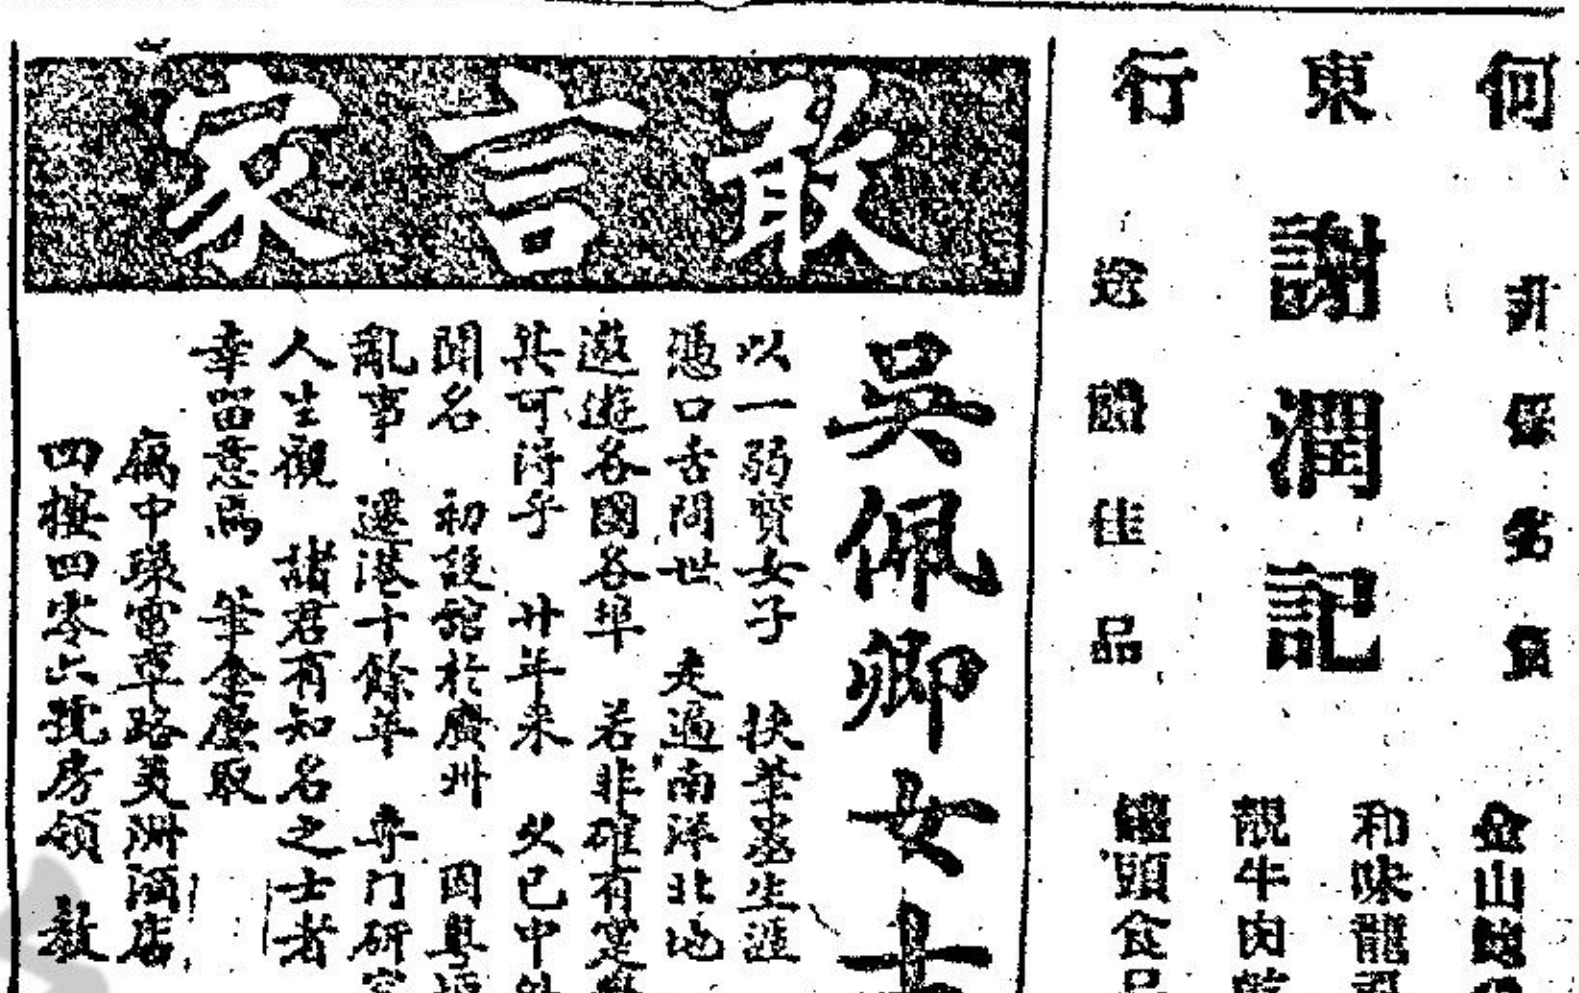 何東行
謝潤記
送贈佳品
金山
和味龍
靚牛肉
罐頭食品
敢言家
吳佩卿女士
以一弱質女子 扶筆墨生涯
憑口舌問世 走過南洋北地
遨遊各國各埠 若非確有
其可得乎 廿年來 久已中外
聞名 初設館於廣州 因粵
亂事 還港十餘年 專門研究
人生觀 諸君有知名之士者
幸留意焉 筆金麼取
寓中環電車路美洲酒店
四樓四零六號房領教